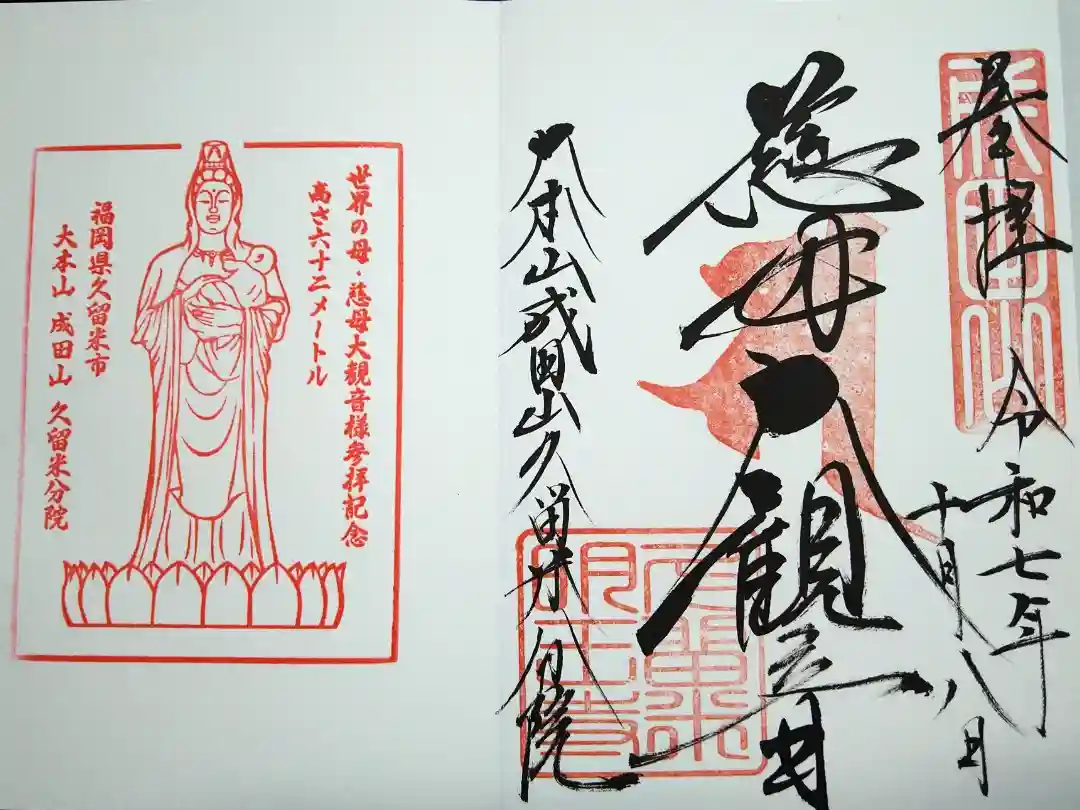 奉拝
令和七年
十月八日
成田山
慈母大観音
大本山成田山久留米分院
久留米
明王寺
世界の母・慈母大観音様参拝記念
高さ六十二メートル
福岡県久留米市
大本山 成田山 久留米分院